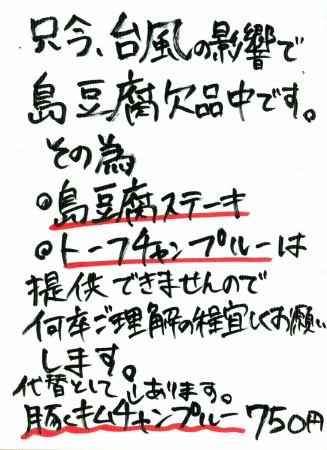 只今、台風の影響で
島豆腐欠品中です。
その為
◎島豆腐ステーキ
◎トーフチャンプルーは
提供できませんので
何卒ご理解の程宜しくお願い
します。
代替として↓あります。
豚キムチャンプルー750円